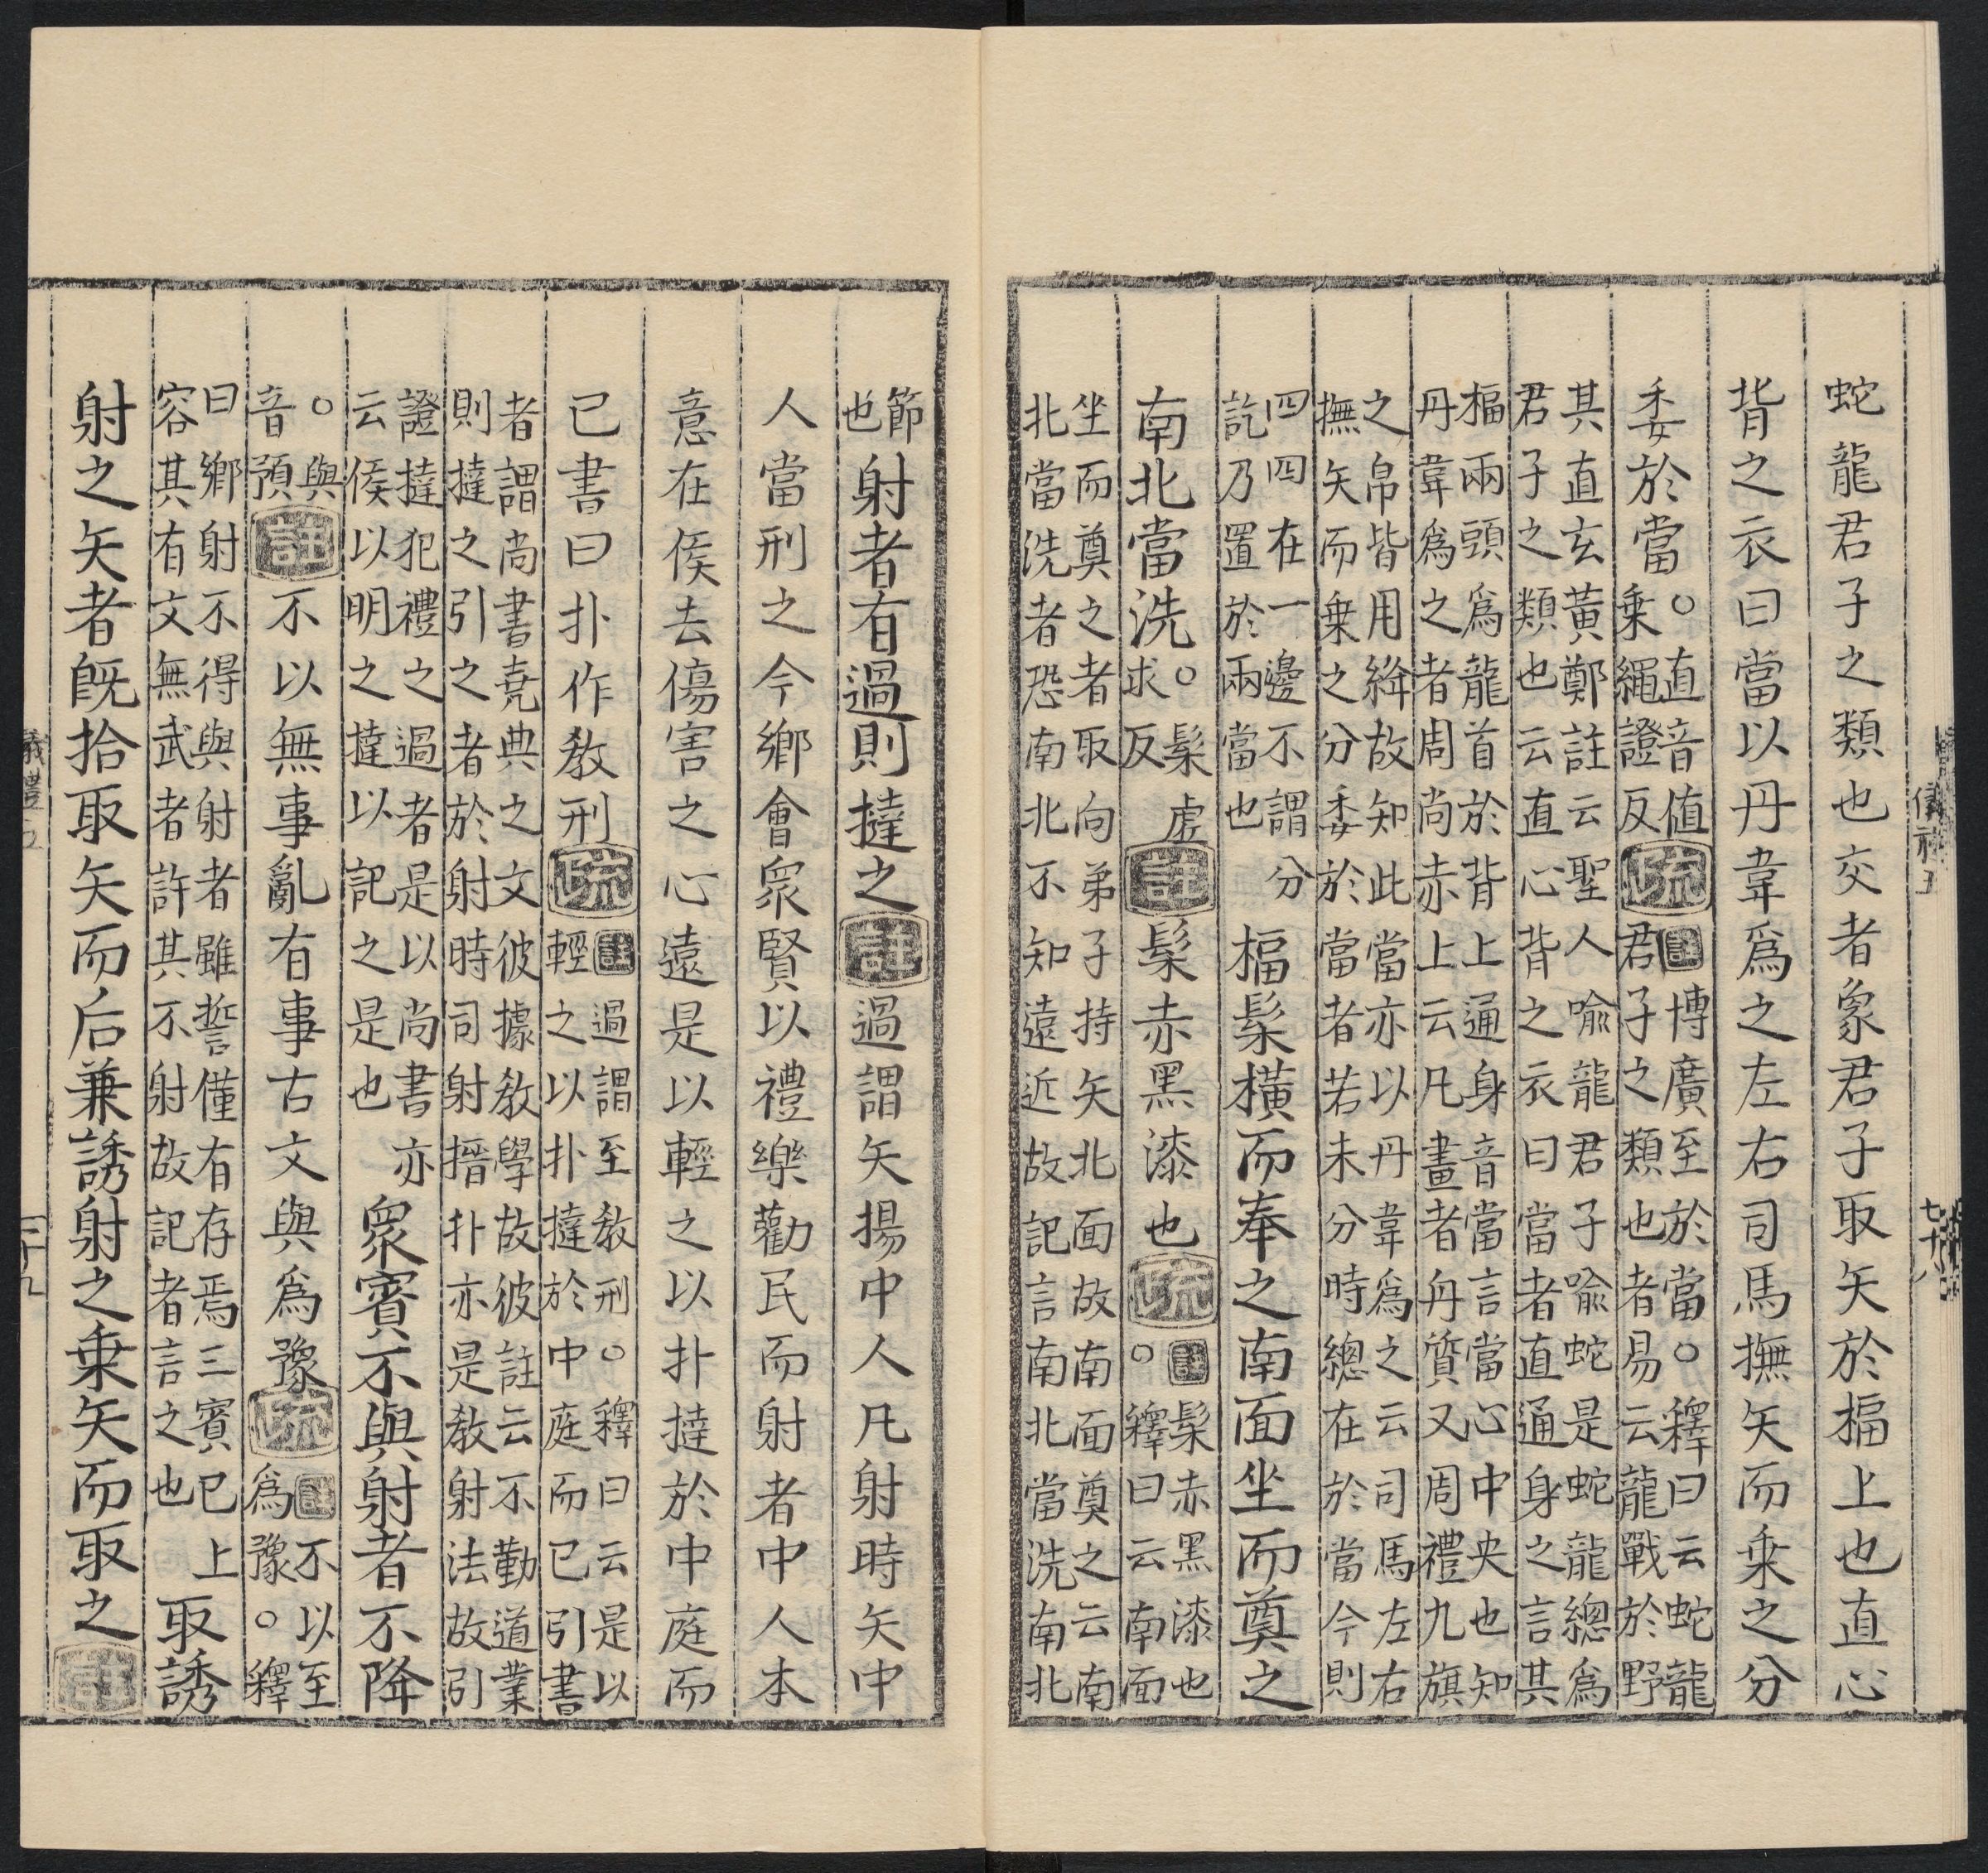 蛇龍君子之類也交者象君子取矢於楅上也直心
背之衣曰當以丹韋爲之左右司馬撫矢而乗之分
委於當○直音值
乗繩證反
疏
註博廣至於當○釋曰云蛇龍
君子之類也者易云龍戰於野
其直玄黃鄭註云聖人喻龍君子喻蛇是蛇龍總爲
君子之類也云直心背之衣曰當者直通身之言其
楅兩頭爲龍首於背上通身音當言當心中央也知
丹韋爲之者周尚赤上云凡畫者丹質又周禮九旗
之帛皆用絳故知此當亦以丹韋爲之云司馬左右
撫矢而乗之分委於當者若未分時總在於當今則
四四在一邊不謂分
訖乃置於兩當也
楅髹橫而奉之南面坐而奠之
南北當洗○髹虛
求反
註
髹赤黑漆也
疏
註髹赤黑漆也
○釋曰云南面
坐而奠之者取向弟子持矢北面故南面奠之云南
北當洗者恐南北不知遠近故記言南北當洗南北
節
也
射者有過則撻之
註
過謂矢揚中人凡射時矢中
人當刑之今鄉會衆賢以禮樂勸民而射者中人本
意在侯去傷害之心遠是以輕之以扑撻於中庭而
已書曰扑作敎刑
疏
註過謂至敎刑○釋曰云是以
輕之以扑撻於中庭而已引書
者謂尚書堯典之文彼據敎學故彼註云不勤道業
則撻之引之者於射時司射搢扑亦是敎射法故引
證撻犯禮之過者是以尚書亦
云侯以明之撻以記之是也
衆賓不與射者不降
○與
音預
註
不以無事亂有事古文與爲豫
疏
註不以至
爲豫○釋
曰鄉射不得與射者雖誓僅有存焉三賓已上
容其有文無武者許其不射故記者言之也
取誘
射之矢者旣拾取矢而后兼誘射之乗矢而取之
註